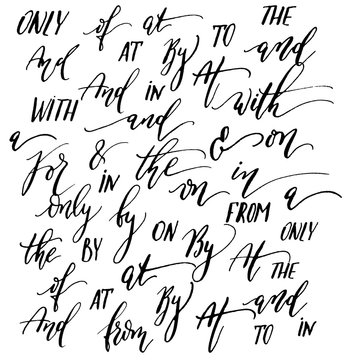 ONLY of at TO THE
And AT By and
And IN At
WITH and with
a For & the & on
IN on in a
only by FROM
the BY ON By ONLY
of at At THE
AT By and
And from At TO IN